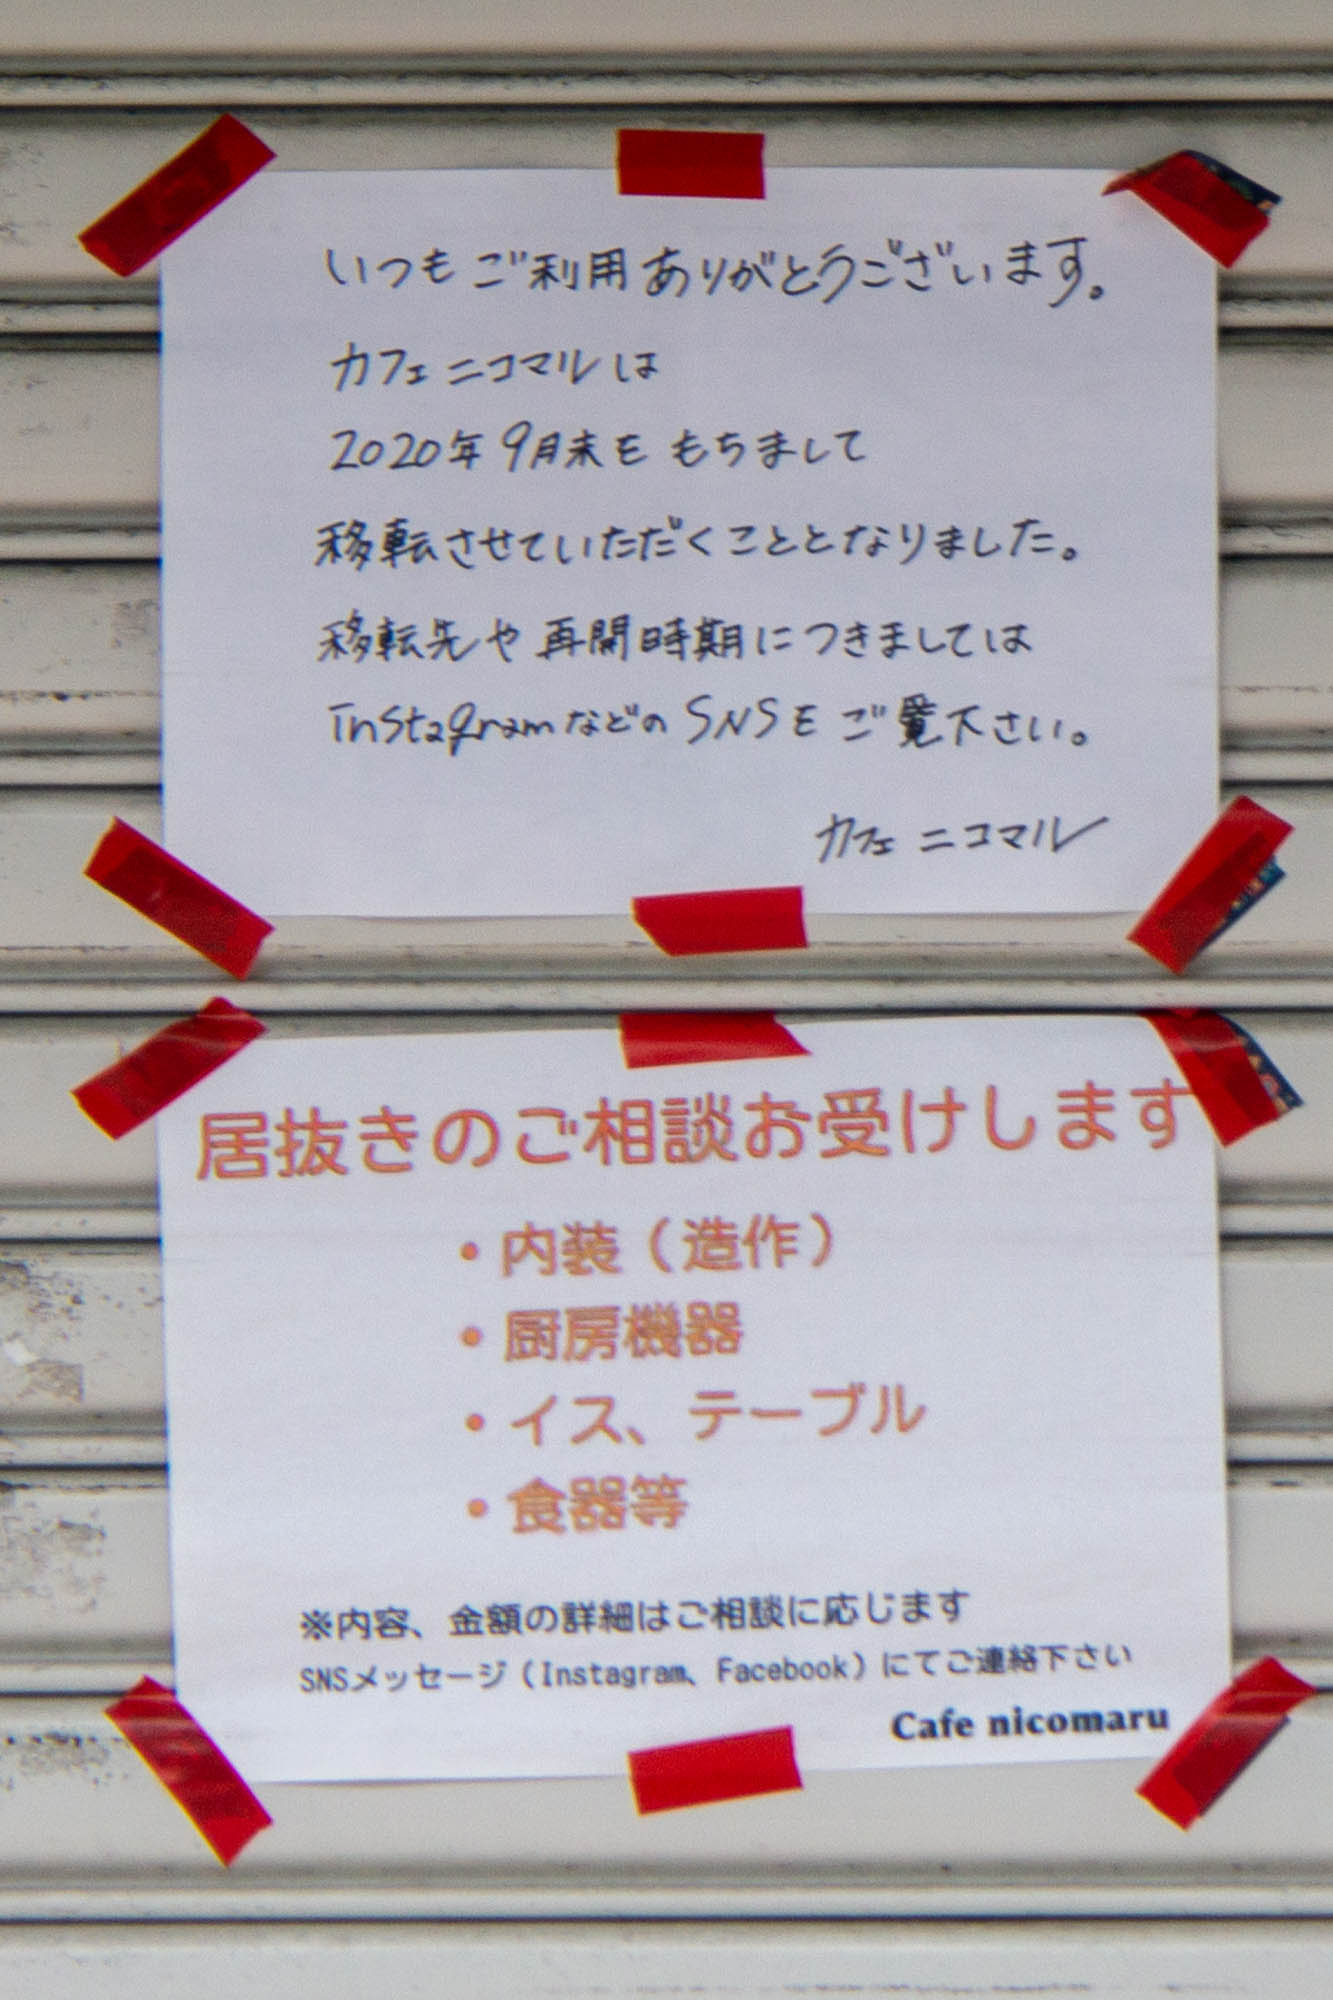 いつもご利用ありがとうございます。
カフェ ニコマルは
2020年 9月末を もちまして
移転させていただくこととなりました。
移転先や 再開時期につきましては
instagramなどの SNSを ご覧下さい。
カフェ ニコマル
居抜きのご相談お受けします
・内装（造作）
・厨房機器
・イス、テーブル
・食器等
※内容、金額の詳細はご相談に応じます
SNSメッセージ（Instagram、Facebook）にてご連絡下さい
Cafe nicomaru